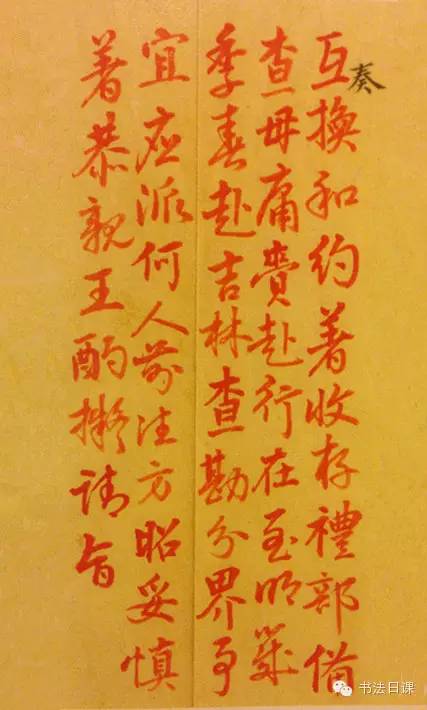 奏
互換和約著收存禮部備
查毋庸賷赴行在至明歲
季春赴吉林查勘分界事
宜应派何人前往方昭妥慎
著恭親王酌擬請旨
书法日课